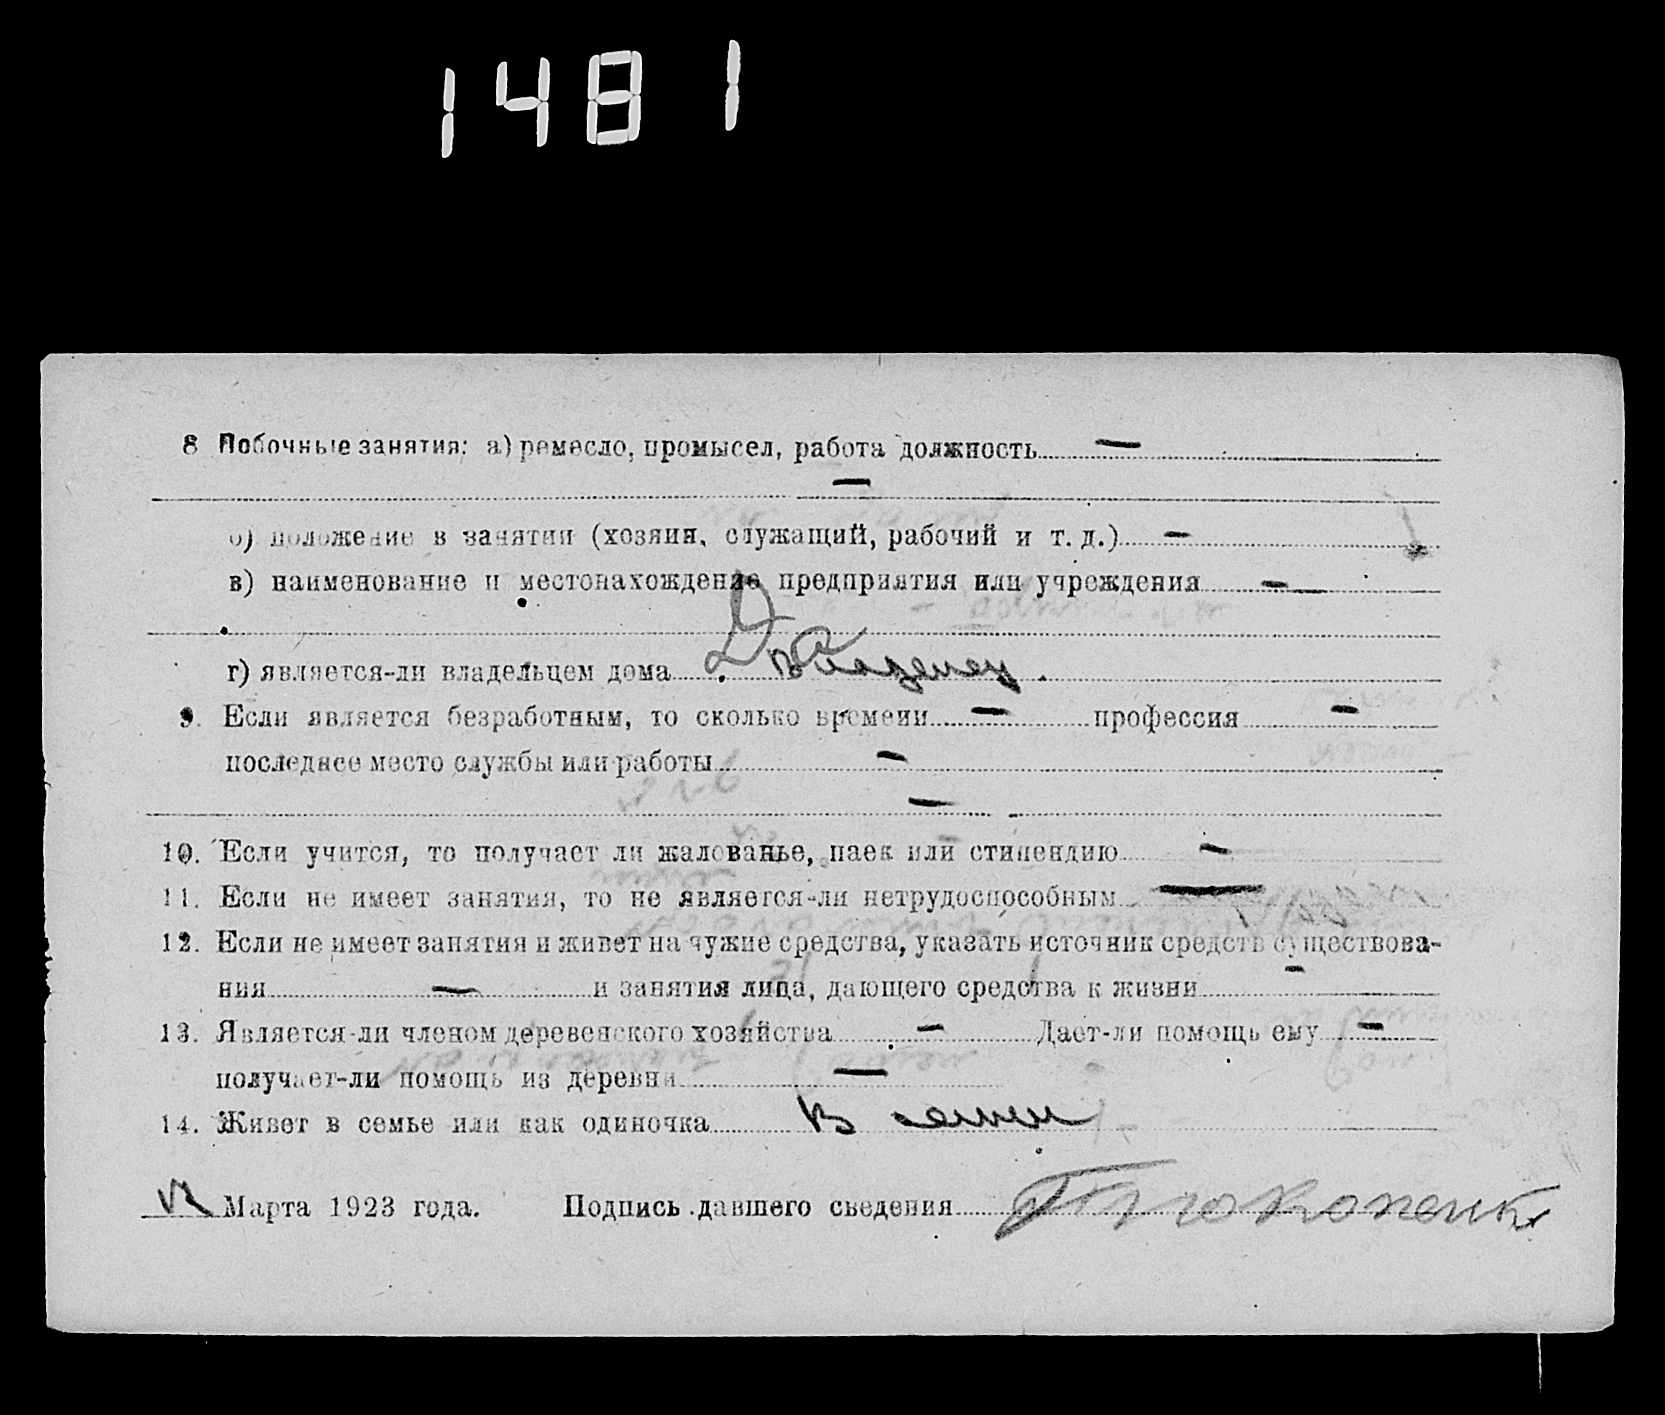 1481
8 Побочные занятия: а) ремесло, промысел, работа должность —
—
б) положение в занятии (хозяин, служащий, рабочий и т. д.) —
в) наименование и местонахождение предприятия или учреждения —
г) является-ли владельцем дома Да владелец.
9. Если является безработным, то сколько времени — профессия —
последнее место службы или работы —
—
10. Если учится, то получает ли жалованье, паек или стипендию —
11. Если не имеет занятия, то не является-ли нетрудоспособным —
12. Если не имеет занятия и живет на чужие средства, указать источник средств существова-
ния — и занятия лица, дающего средства к жизни —
13. Является-ли членом деревенского хозяйства — Дает-ли помощь ему —
получает-ли помощь из деревни —
14. Живет в семье или как одиночка В семьи
Марта 1923 года. Подпись давшего сведения